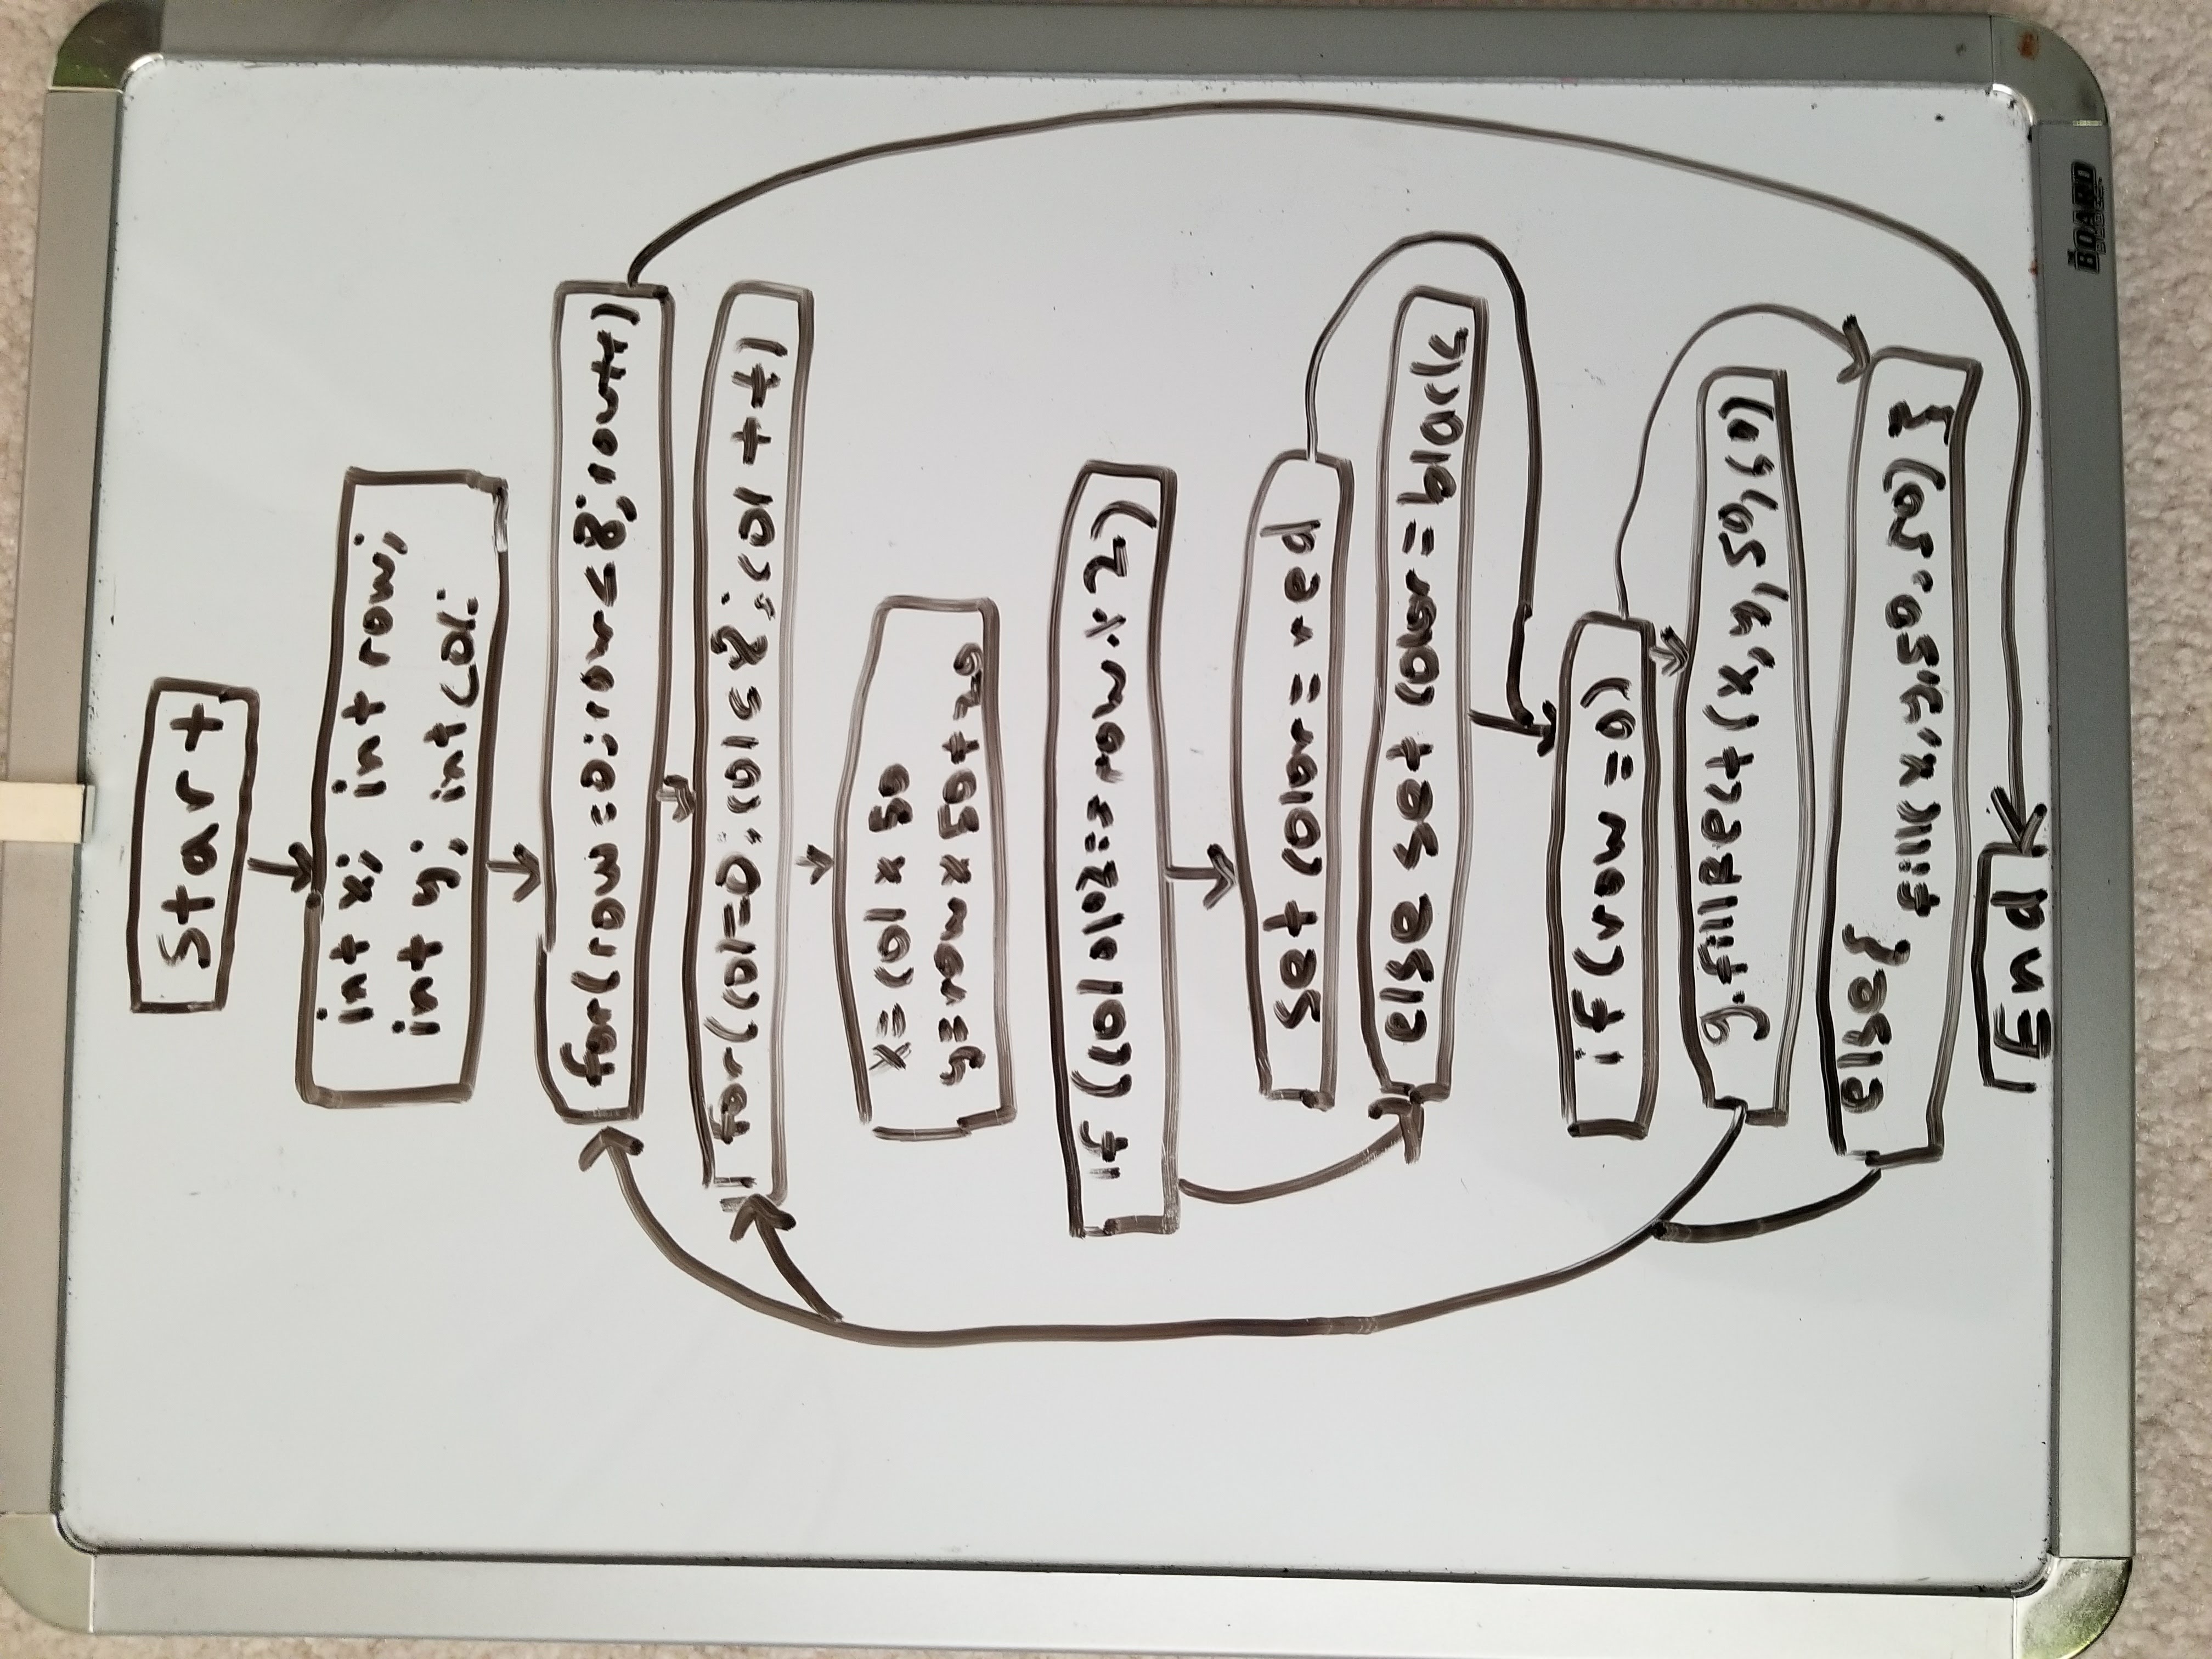 Start
int x; int row;
int y; int col;
for(row=0;row<8;row++)
for(col=0;col<8;col++)
x=col x 50
y=row x 50+20
if (col%2==row x 2)
set color=red
else set color=black
if(row=0)
g.fillRect(x,y,50,60)
else{
fill(x,y,50,50)}
End
THE
BOARD
DUDES